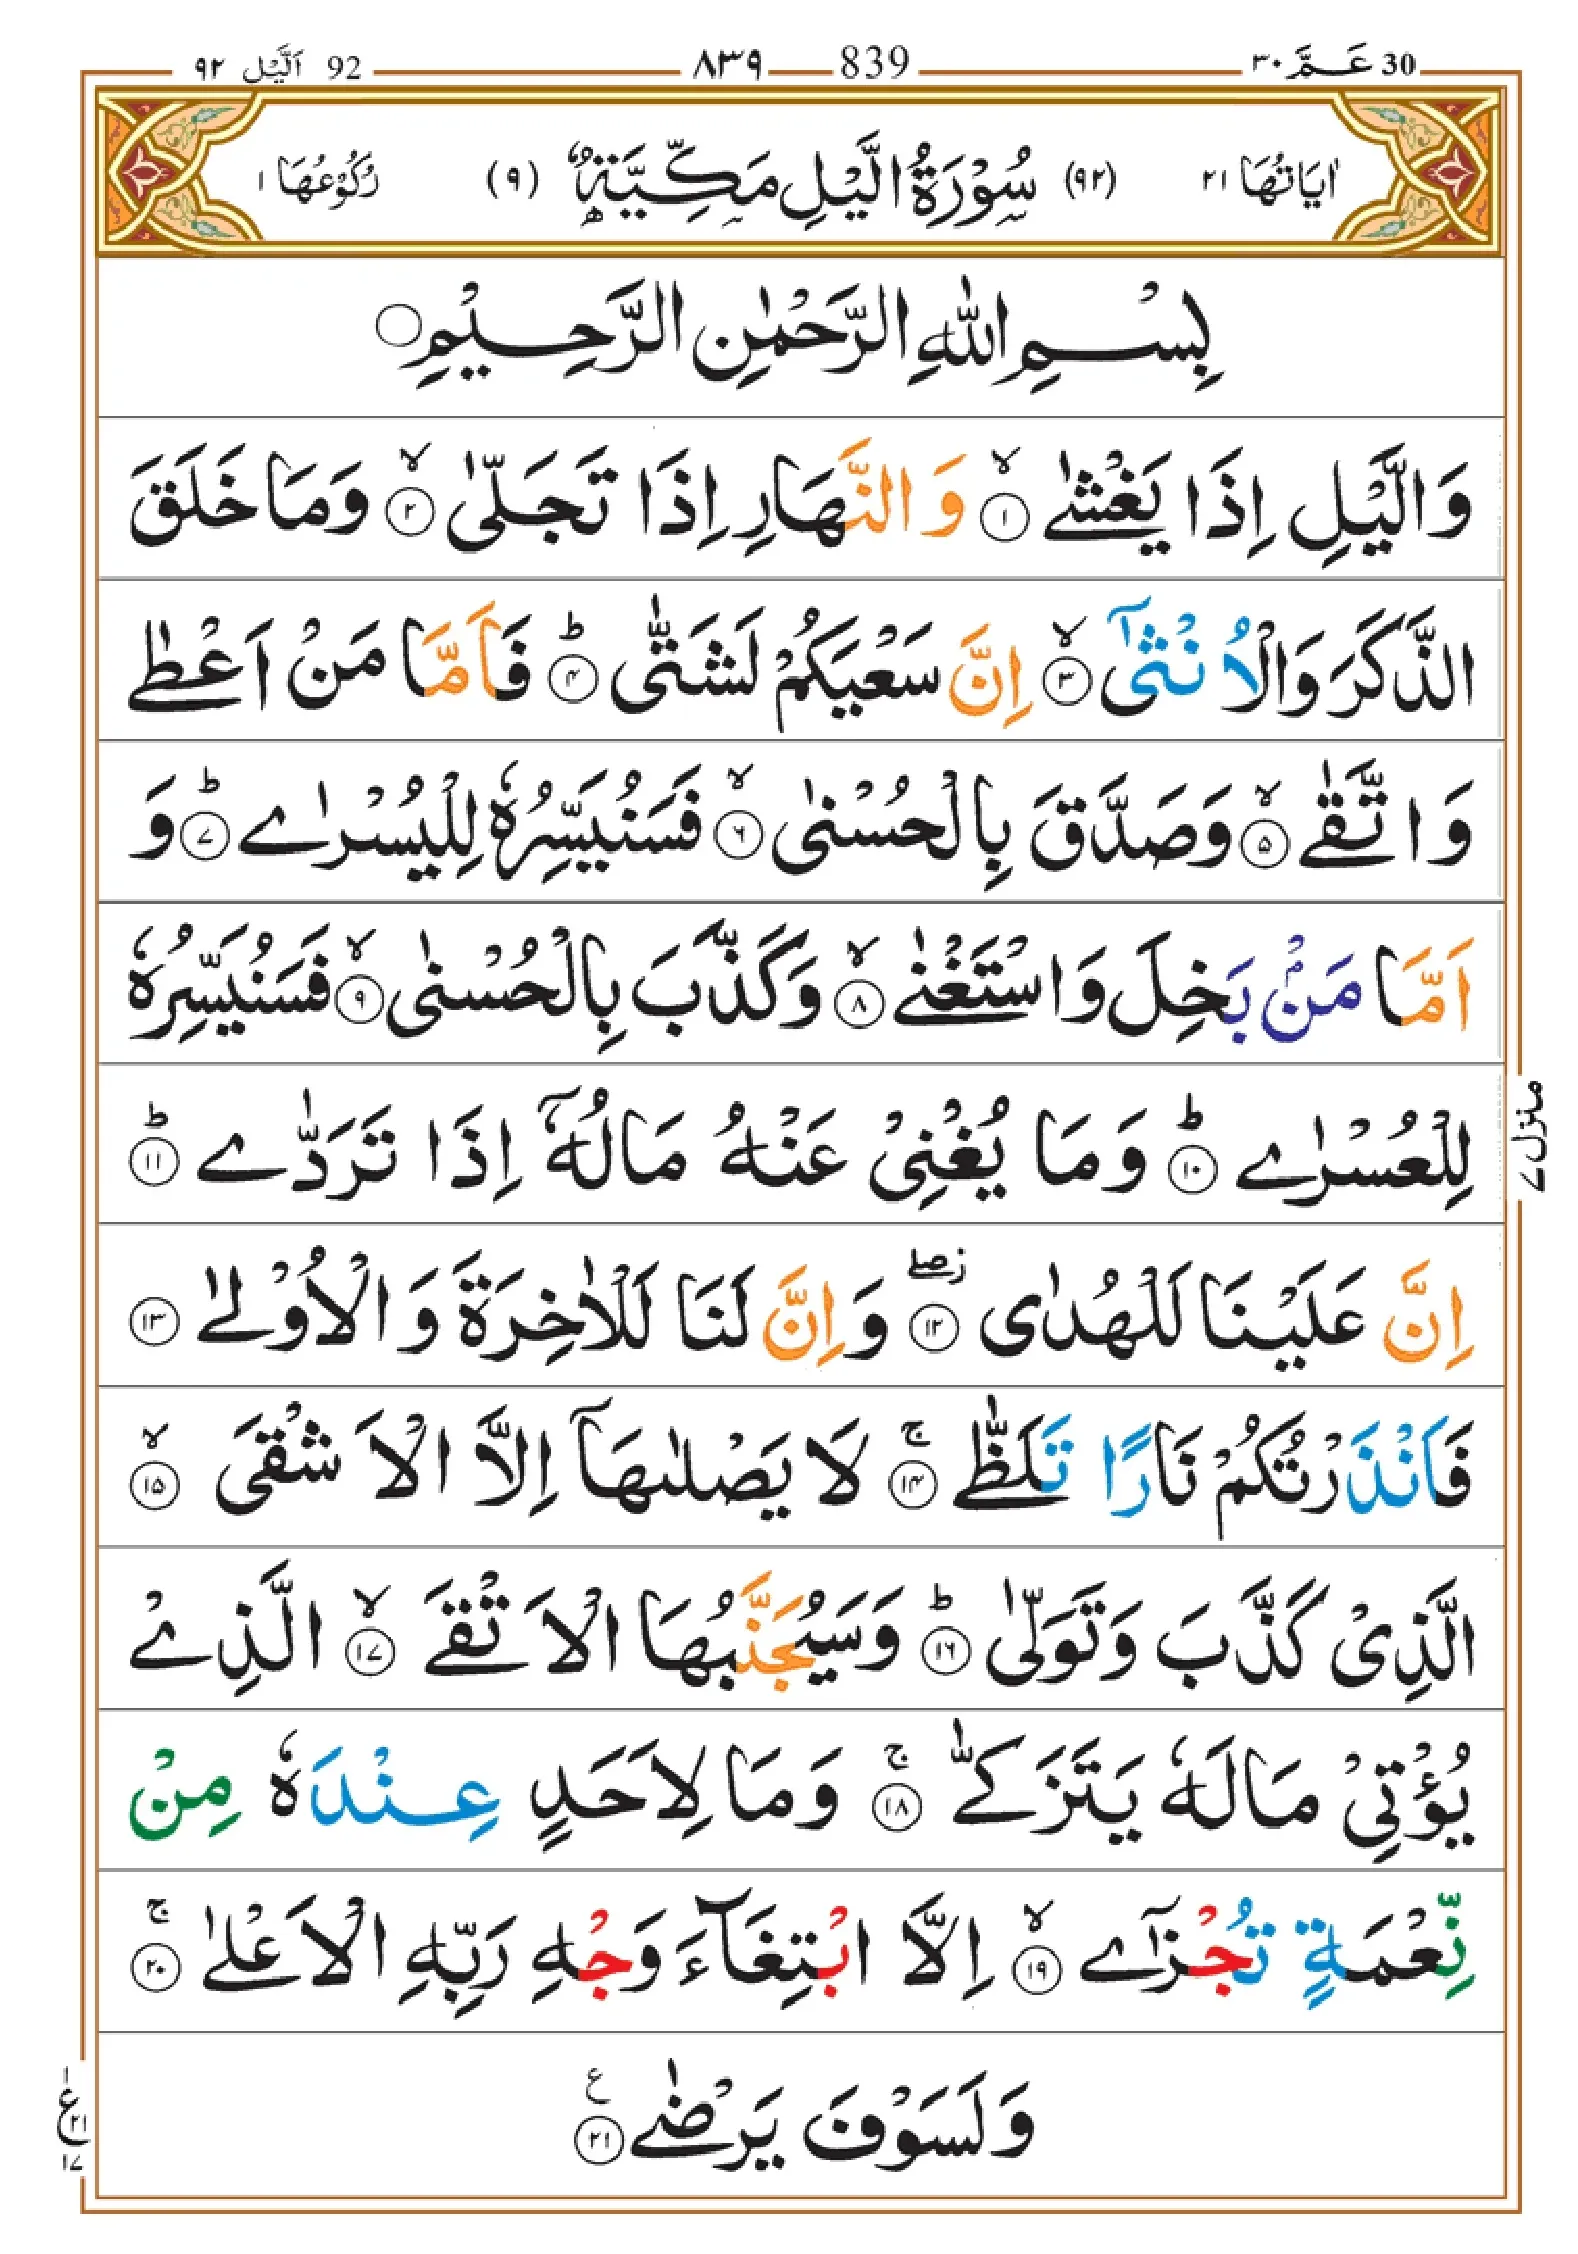 30 عَمَّ ٣٠
839 ٨٣٩
92 اَلَّيْل ٩٢
اٰيَاتُهَا ٢١ (٩٢) سُوْرَةُ الَّيْلِ مَكِّيَّةٌ (٩) رُكُوْعُهَا ١
بِسْمِ اللّٰهِ الرَّحْمٰنِ الرَّحِيْمِ ○
وَالَّيْلِ اِذَا يَغْشٰے ۙ﴿١﴾ وَالنَّهَارِ اِذَا تَجَلّٰی ۙ﴿٢﴾ وَمَا خَلَقَ
الذَّكَرَ وَالْاُنْثٰۤی ۙ﴿٣﴾ اِنَّ سَعْيَكُمْ لَشَتّٰی ؕ﴿٤﴾ فَاَمَّا مَنْ اَعْطٰے
وَاتَّقٰے ۙ﴿٥﴾ وَصَدَّقَ بِالْحُسْنٰی ۙ﴿٦﴾ فَسَنُيَسِّرُهٗ لِلْيُسْرٰے ؕ﴿٧﴾ وَ
اَمَّا مَنْۢ بَخِلَ وَاسْتَغْنٰے ۙ﴿٨﴾ وَكَذَّبَ بِالْحُسْنٰی ۙ﴿٩﴾ فَسَنُيَسِّرُهٗ
لِلْعُسْرٰے ؕ﴿١٠﴾ وَمَا يُغْنِیْ عَنْهُ مَالُهٗۤ اِذَا تَرَدّٰے ؕ﴿١١﴾
منزل ٧
اِنَّ عَلَيْنَا لَلْهُدٰی ۖز﴿١٢﴾ وَاِنَّ لَنَا لَلْاٰخِرَةَ وَالْاُوْلٰے ﴿١٣﴾
فَاَنْذَرْتُكُمْ نَارًا تَلَظّٰے ۚ﴿١٤﴾ لَا يَصْلٰىهَاۤ اِلَّا الْاَشْقَی ۙ﴿١٥﴾
الَّذِیْ كَذَّبَ وَتَوَلّٰی ؕ﴿١٦﴾ وَسَيُجَنَّبُهَا الْاَتْقَے ۙ﴿١٧﴾ الَّذِےْ
يُؤْتِیْ مَالَهٗ يَتَزَكّٰے ۚ﴿١٨﴾ وَمَا لِاَحَدٍ عِنْدَهٗ مِنْ
نِّعْمَةٍ تُجْزٰۤے ۙ﴿١٩﴾ اِلَّا ابْتِغَآءَ وَجْهِ رَبِّهِ الْاَعْلٰی ۚ﴿٢٠﴾
وَلَسَوْفَ يَرْضٰے ﴿٢١﴾ ع
١
ع ٢١
١٧